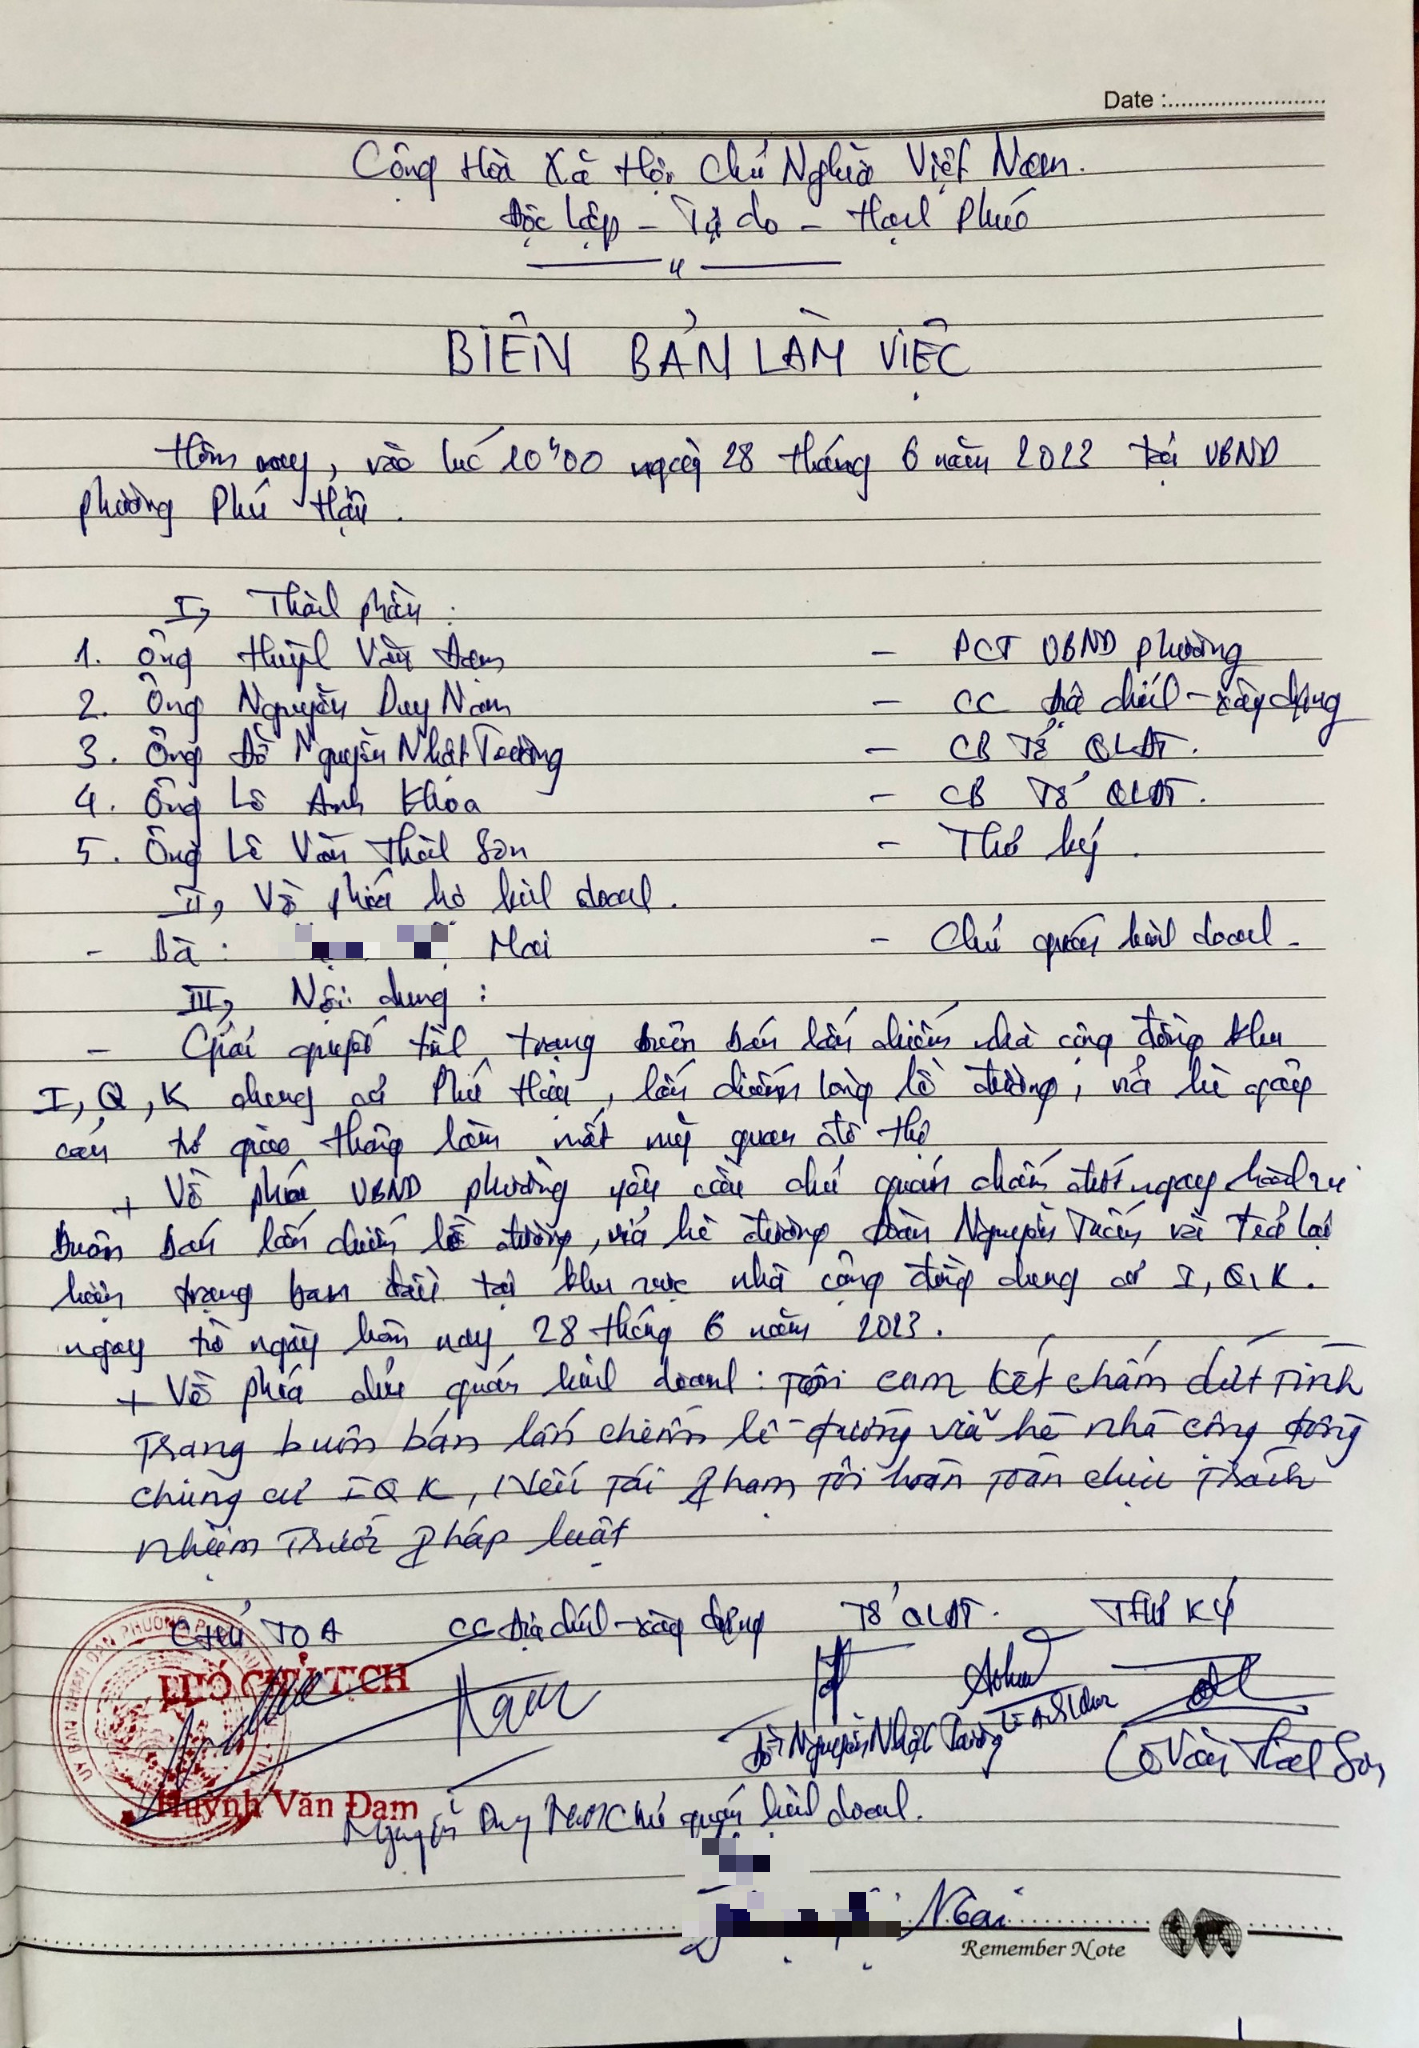 Date :
Cộng Hòa Xã Hội Chủ Nghĩa Việt Nam.
Độc lập - Tự do - Hạnh Phúc
BIÊN BẢN LÀM VIỆC
Hôm nay, vào lúc 10h00 ngày 28 tháng 6 năm 2023 tại UBND
phường Phú Hậu.
I, Thành phần:
1. Ông Huỳnh Văn Đạm - PCT UBND phường
2. Ông Nguyễn Duy Nam - CC địa chính - xây dựng
3. Ông Đỗ Nguyễn Nhật Trường - CB Tổ QLĐT.
4. Ông Lê Anh Khoa - CB Tổ QLĐT.
5. Ông Lê Văn Thành Sơn - Thư ký.
II, Về phía hộ kinh doanh.
- Bà: Mai - Chủ quán kinh doanh.
III, Nội dung:
- Giải quyết tình trạng buôn bán lấn chiếm nhà cộng đồng khu
I, Q, K chung cư Phú Hậu, lấn chiếm lòng lề đường, vỉa hè gây
cản trở giao thông làm mất mỹ quan đô thị
+ Về phía UBND phường yêu cầu chủ quán chấm dứt ngay hành vi
buôn bán lấn chiếm lề đường, vỉa hè đường Đoàn Nguyễn Tuấn và trả lại
hiện trạng ban đầu tại khu vực nhà cộng đồng chung cư I, Q, K.
ngay từ ngày hôm nay 28 tháng 6 năm 2023.
+ Về phía chủ quán kinh doanh: Tôi cam kết chấm dứt tình
trang buôn bán lấn chiếm lề đường vĩa hè nhà công đồng
chung cư I Q K, Nếu tái phạm tôi hoàn toàn chịu trách
nhiệm trước pháp luật
CHỦ TỌA CC địa chính - xây dựng Tổ QLĐT. THƯ KÝ
PHÓ CHỦ TỊCH
Nam
Đỗ Nguyễn Nhật Trường Lê Anh Khoa Lê Văn Thành Sơn
Huỳnh Văn Đạm
Nguyễn Duy Nam Chủ quán kinh doanh.
Mai
Remember Note